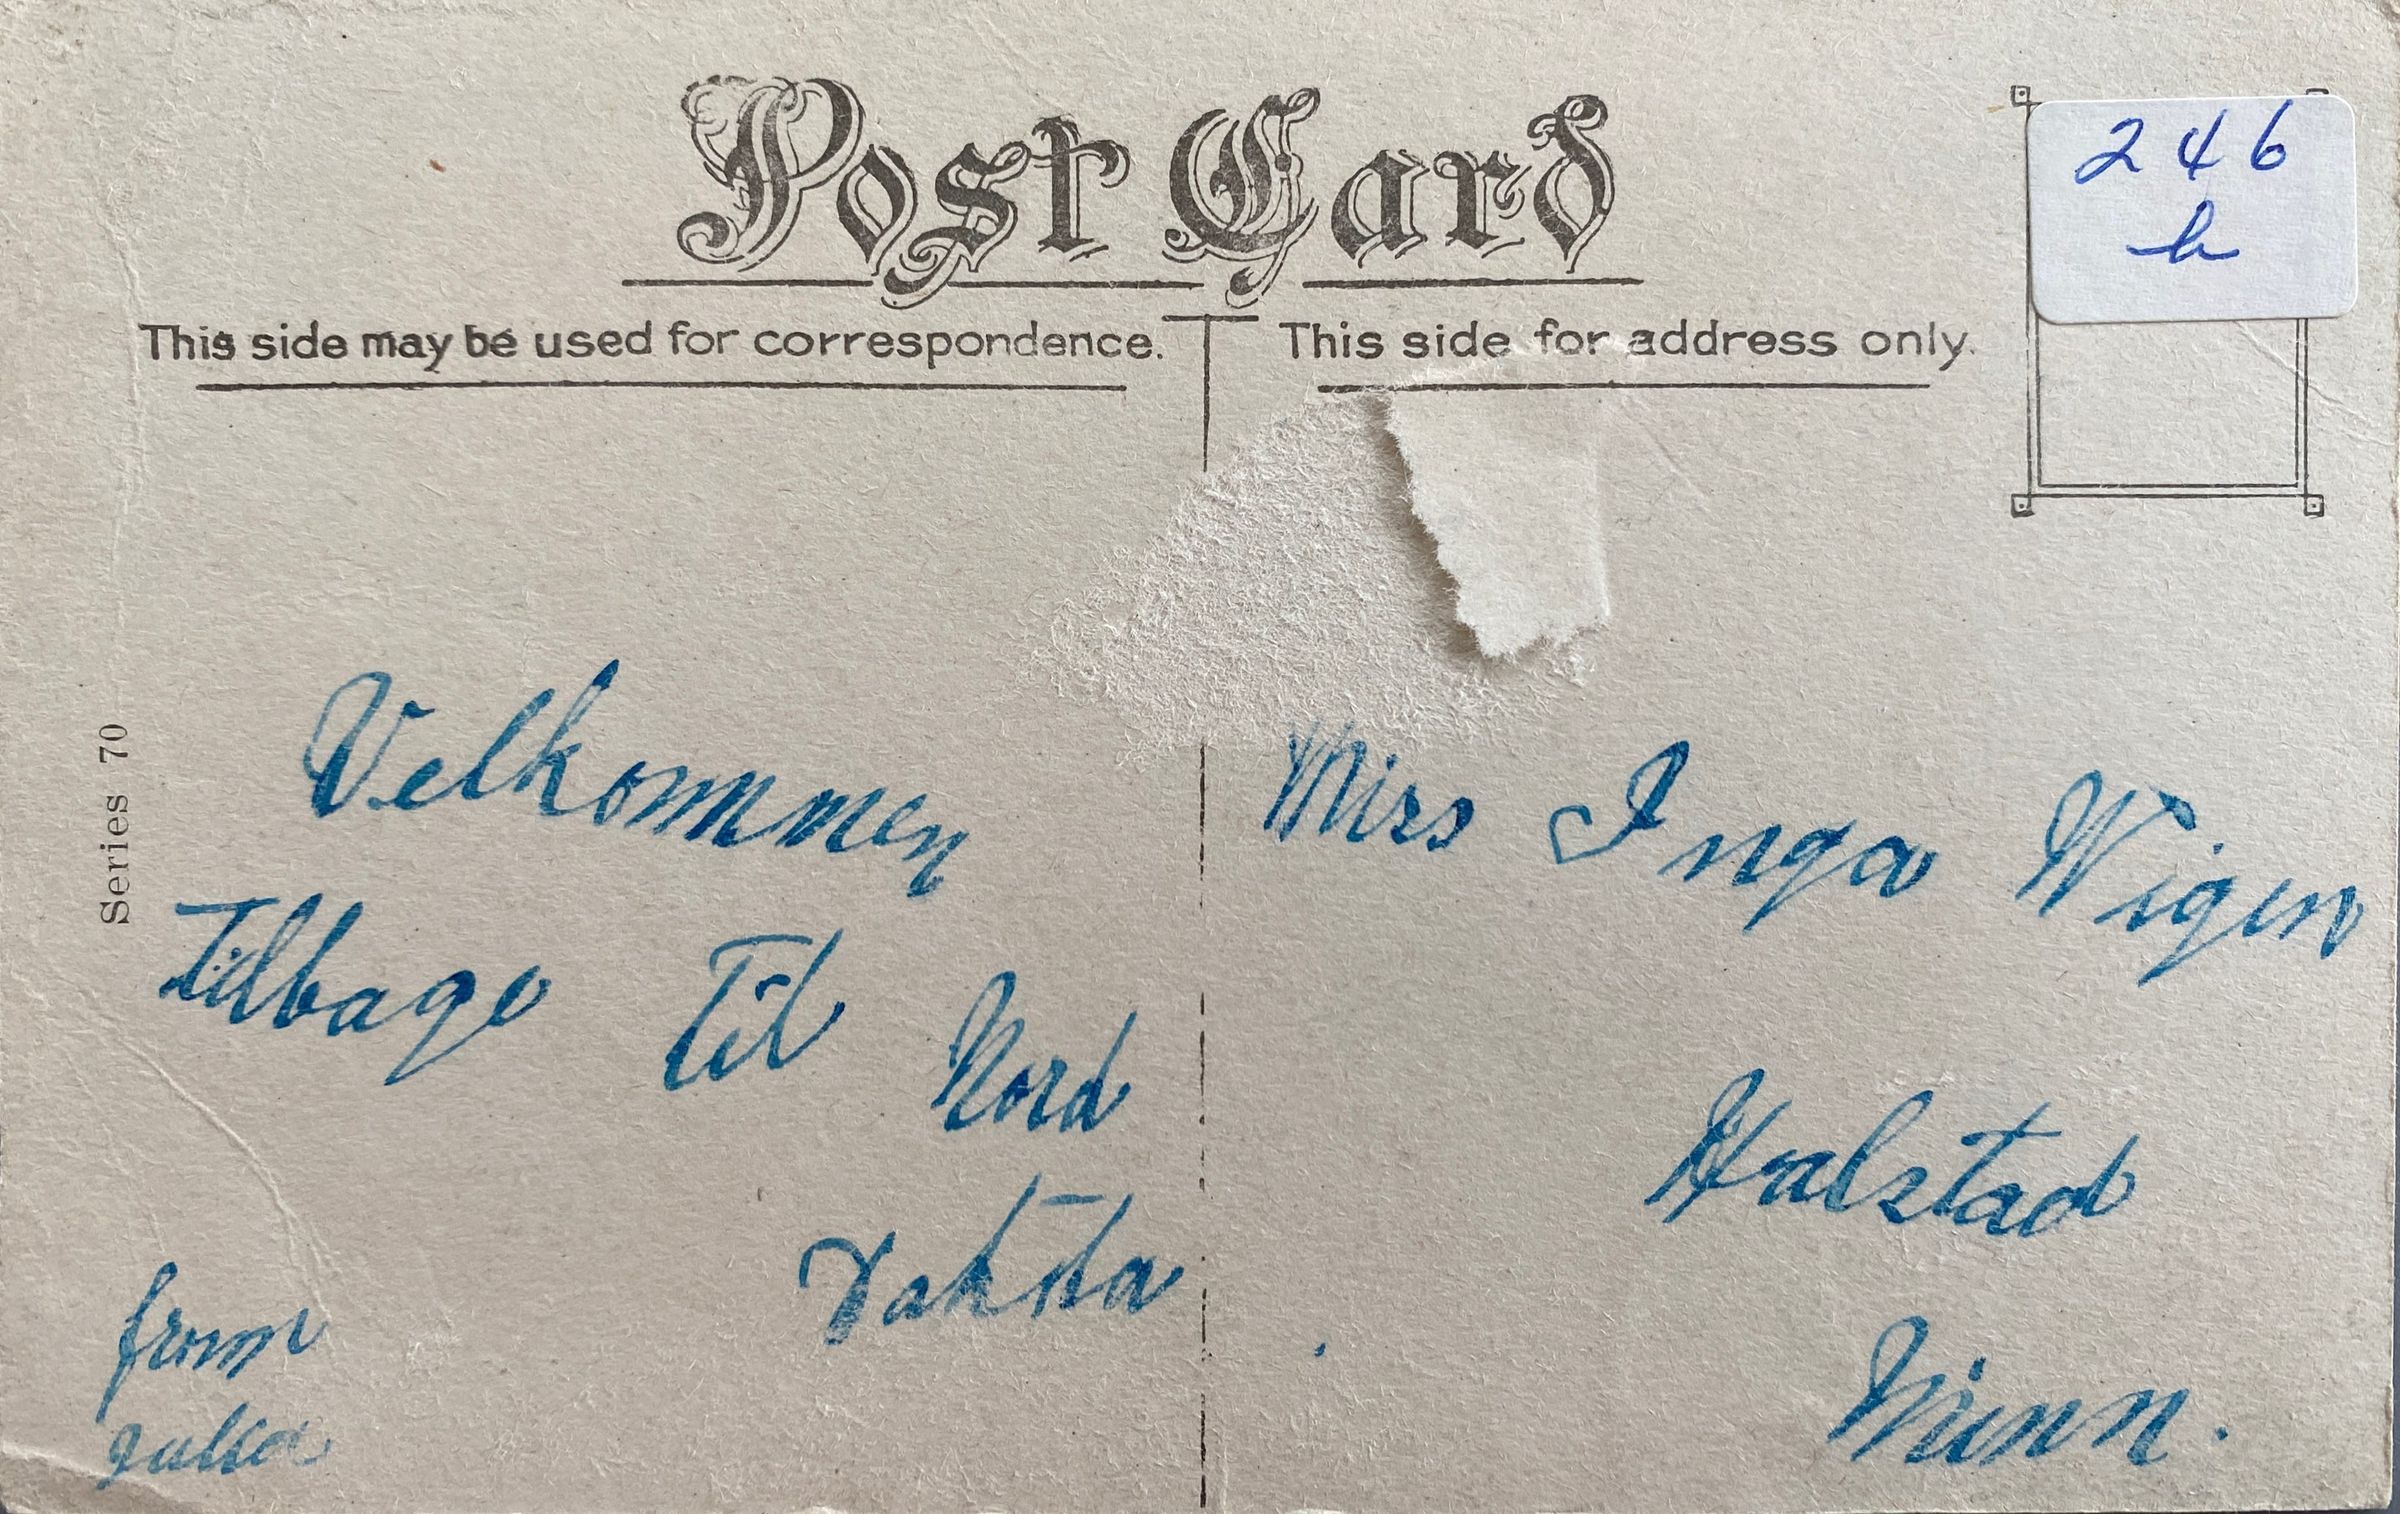 Post Card
246
b
This side may be used for correspondence.
This side for address only.
Series 70
Velkommen
tilbage til Nord
Dakota
from
Julia
Miss Inga Wigen
Halstad
Minn.